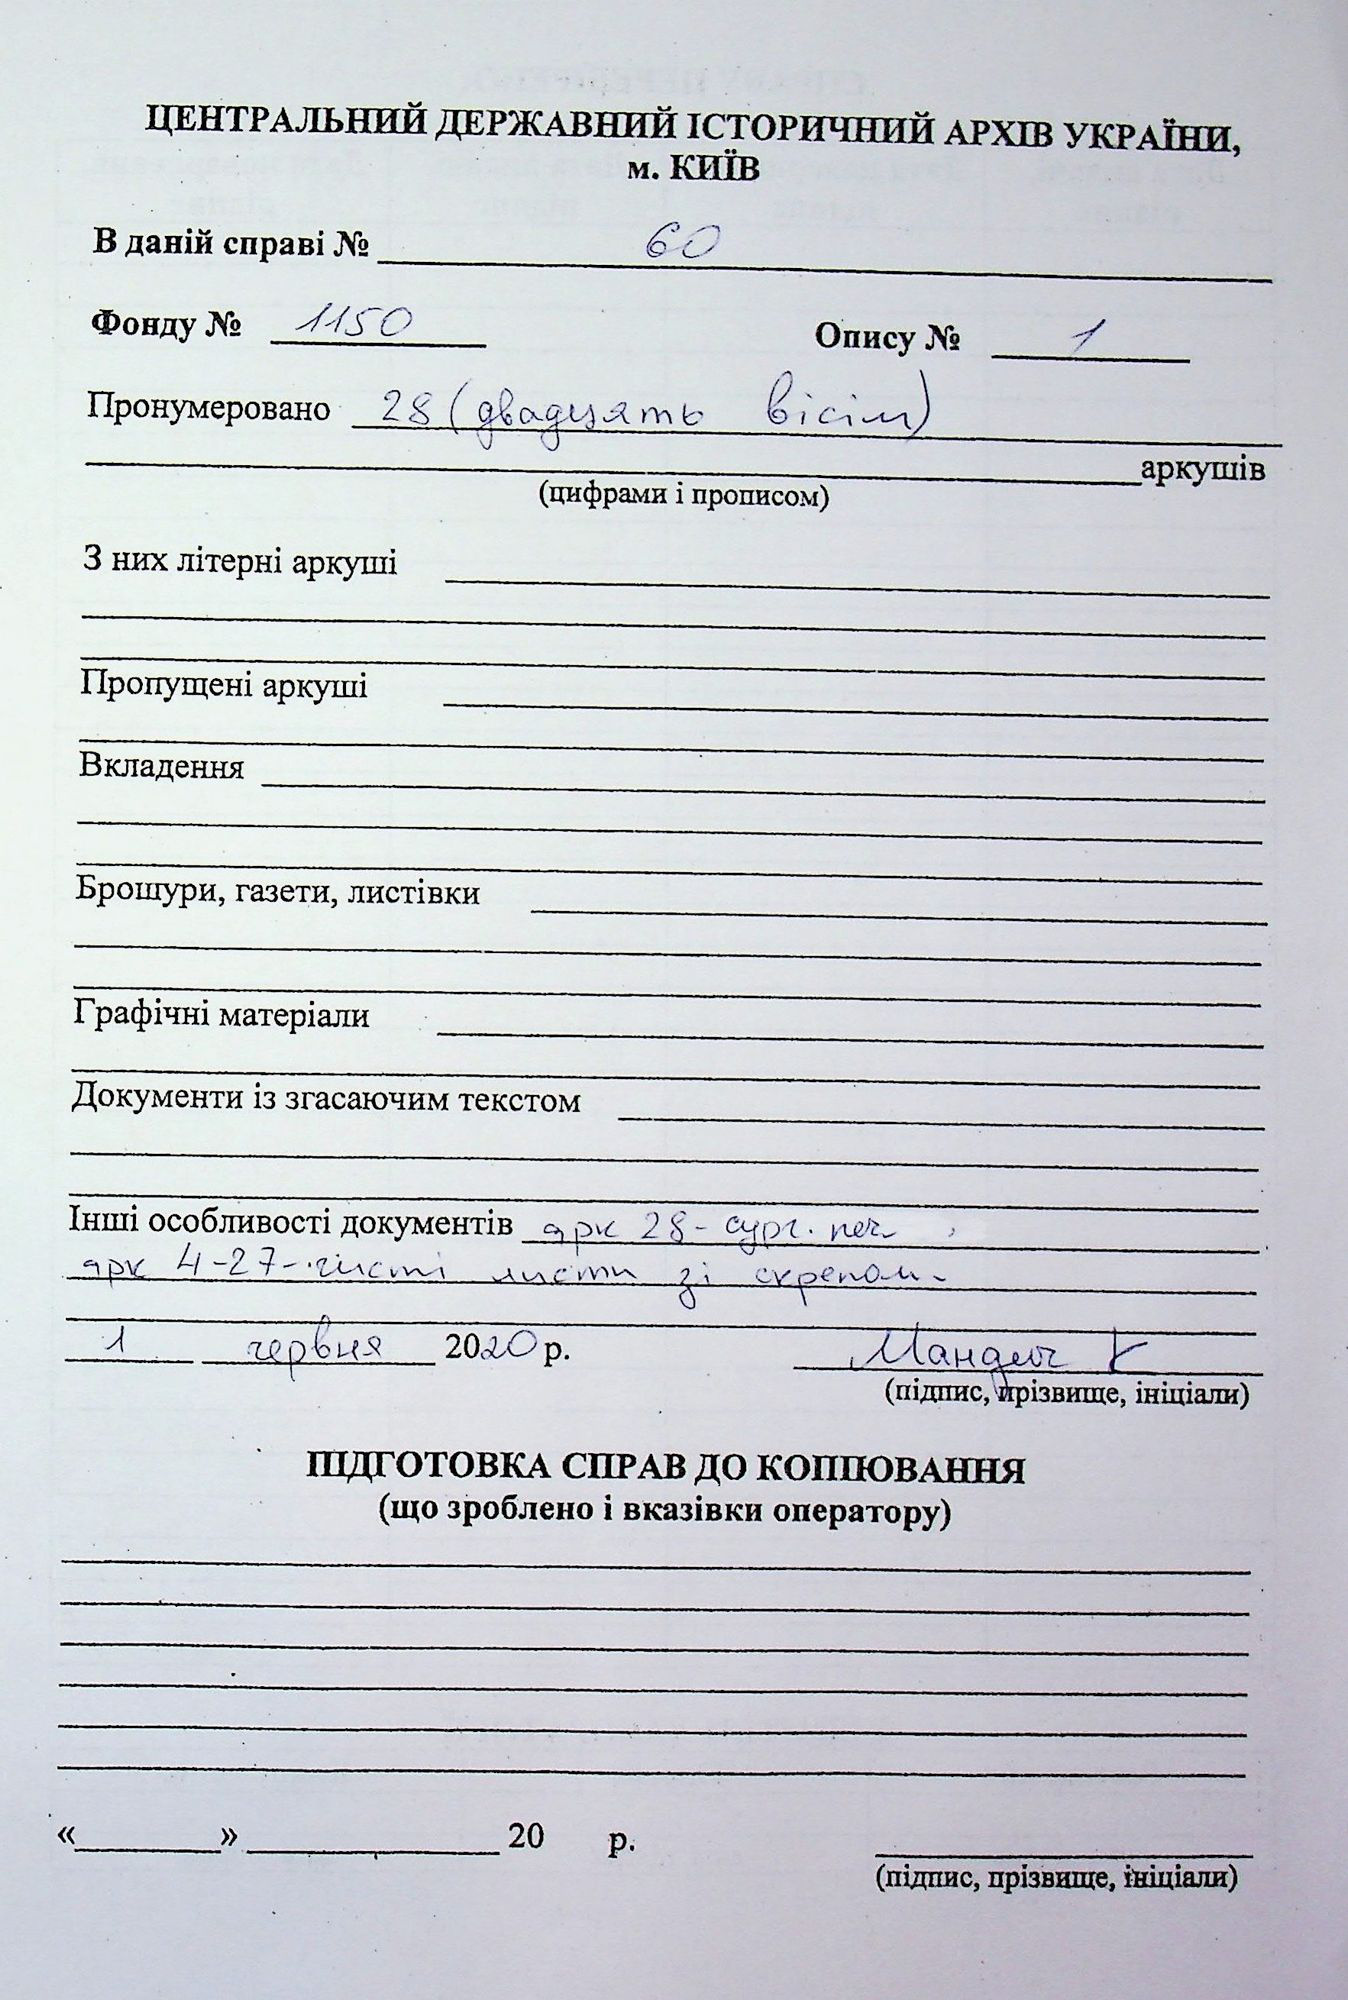 ЦЕНТРАЛЬНИЙ ДЕРЖАВНИЙ ІСТОРИЧНИЙ АРХІВ УКРАЇНИ,
м. КИЇВ
В даній справі № 60
Фонду № 1150 Опису № 1
Пронумеровано 28 (двадцять вісім)
аркушів
(цифрами і прописом)
З них літерні аркуші
Пропущені аркуші
Вкладення
Брошури, газети, листівки
Графічні матеріали
Документи із згасаючим текстом
Інші особливості документів арк 28 - сург. печ.
арк 4-27 - чисті листи зі скрепом.
1 червня 2020 р. Мандич К
(підпис, прізвище, ініціали)
ПІДГОТОВКА СПРАВ ДО КОПІЮВАННЯ
(що зроблено і вказівки оператору)
« » 20 р.
(підпис, прізвище, ініціали)